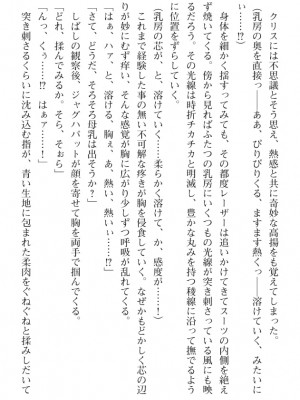 クリスには不思議とそう思え、熱感と共に奇妙な高揚も覚えてしまった。
（乳房の奥を直接っ――ああ、ぴりぴりくる、ますます熱くっ――溶けていく、みたいに
っ⁉）
身体を細かく揺すってみても、その都度レーザーは追いかけてきてスーツの内側を絶え
ず焼いてくる。傍から見ればふたつの乳房にいくつもの光線が突き刺さっている風にも映
るだろう。その光線は時折チカチカと明滅し、豊かな丸みを持つ稜線に沿って撫でるよう
に位置をずらしていく。
（乳房の芯が、と、溶けていく……柔らかく溶けて、か、感度が……！）
これまで経験した事の無い不可解な疼きが胸を侵食していく。なぜかもどかしく芯の辺
りが妙にむず痒い、そんな感覚が胸に広がり少しずつ呼吸が乱れてくる。
「は、ァ、ハァ、と、溶ける、胸ぇ、あ、熱い、熱いぃ……⁉」
「さて、どうだ、そろそろ母乳は出そうか？」
しばしの観察後、ジャグハバットが顔を寄せて胸を両手で掴んでくる。
「どれ、揉んでみるか。そら、そぉら」
「んっ、くぅっ……⁉　はぁァ……！」
突き刺さるくらいに沈み込む指が、青い生地に包まれた柔肉をぐねぐねと揉みしだいて